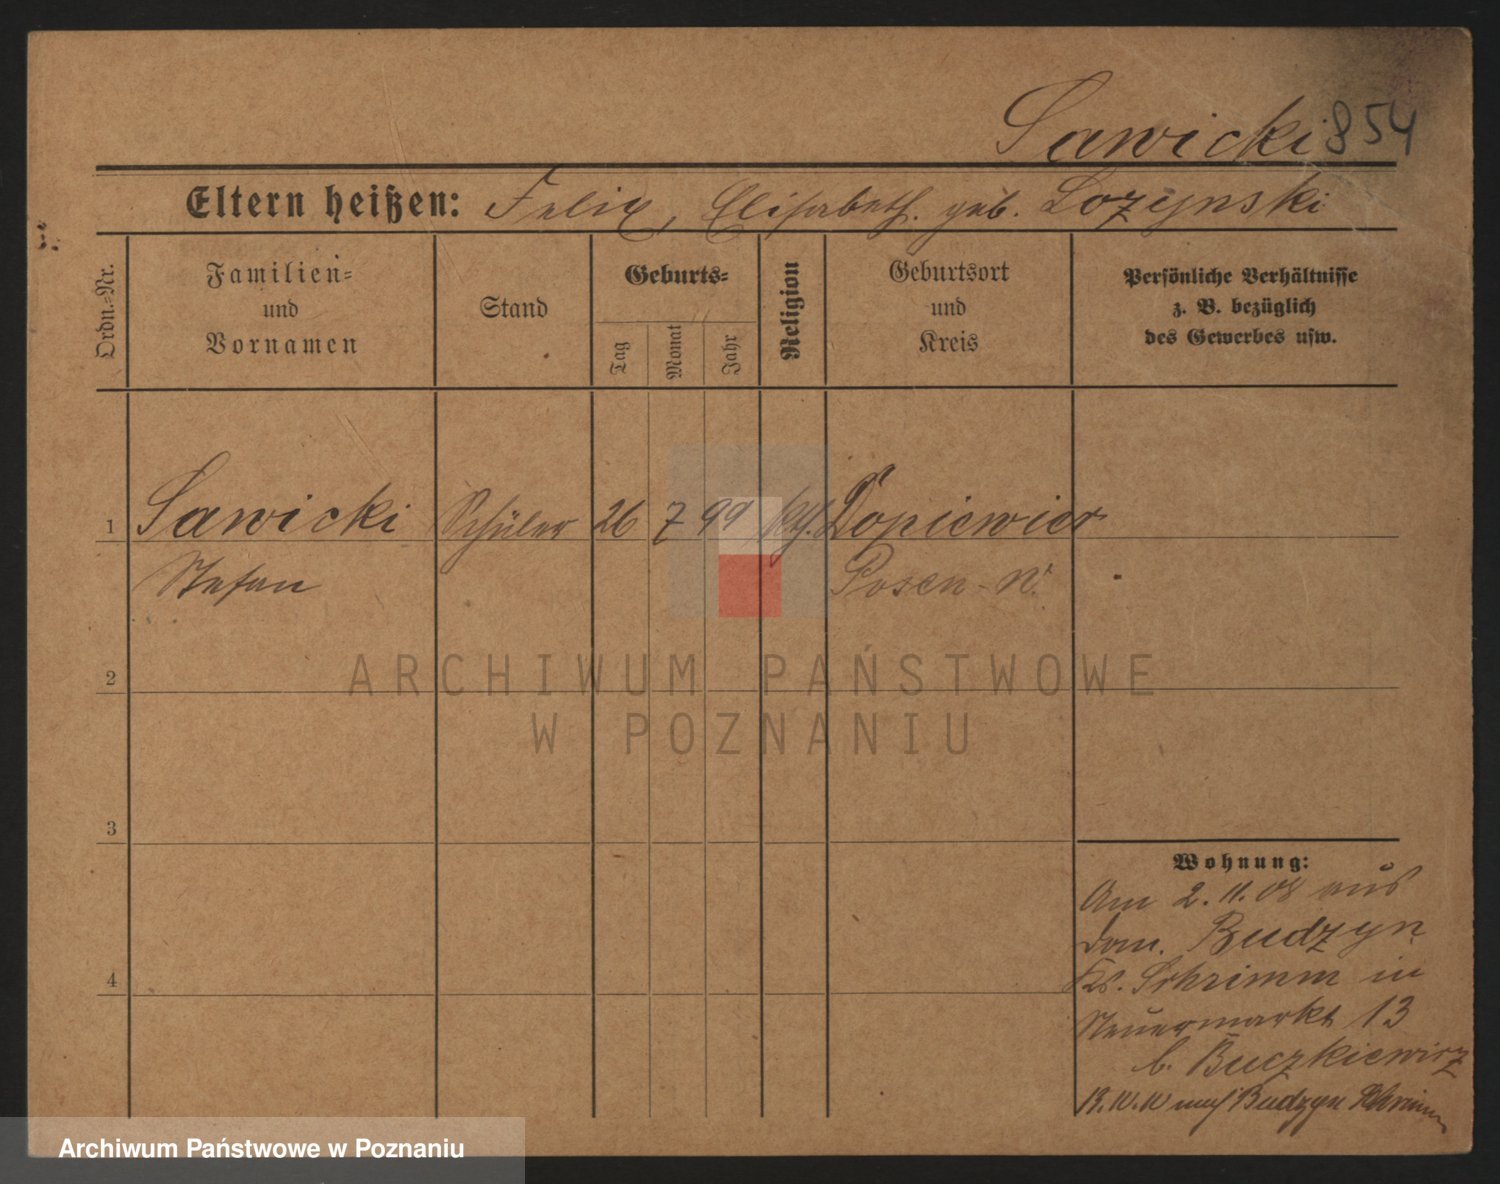 Sawicki 854
Eltern heißen: Felix, Elisabeth. geb. Lozynski
Ordn.=Nr.
Familien=
und
Vornamen
Stand
Geburts=
Tag
Monat
Jahr
Religion
Geburtsort
und
Kreis
Persönliche Verhältnisse
z. B. bezüglich
des Gewerbes usw.
1 Sawicki Schüler 26 7 99 kth. Dopiewiec
Stefan Posen-W.
2
3
4
Wohnung:
Am 2.11.08 aus
Dom. Budzyn
Ks. Schrimm in
Neuermarkt 13
b. Buczkiewicz
10.10 nach Budzyn Schrimm
ARCHIWUM PAŃSTWOWE
W POZNANIU
Archiwum Państwowe w Poznaniu